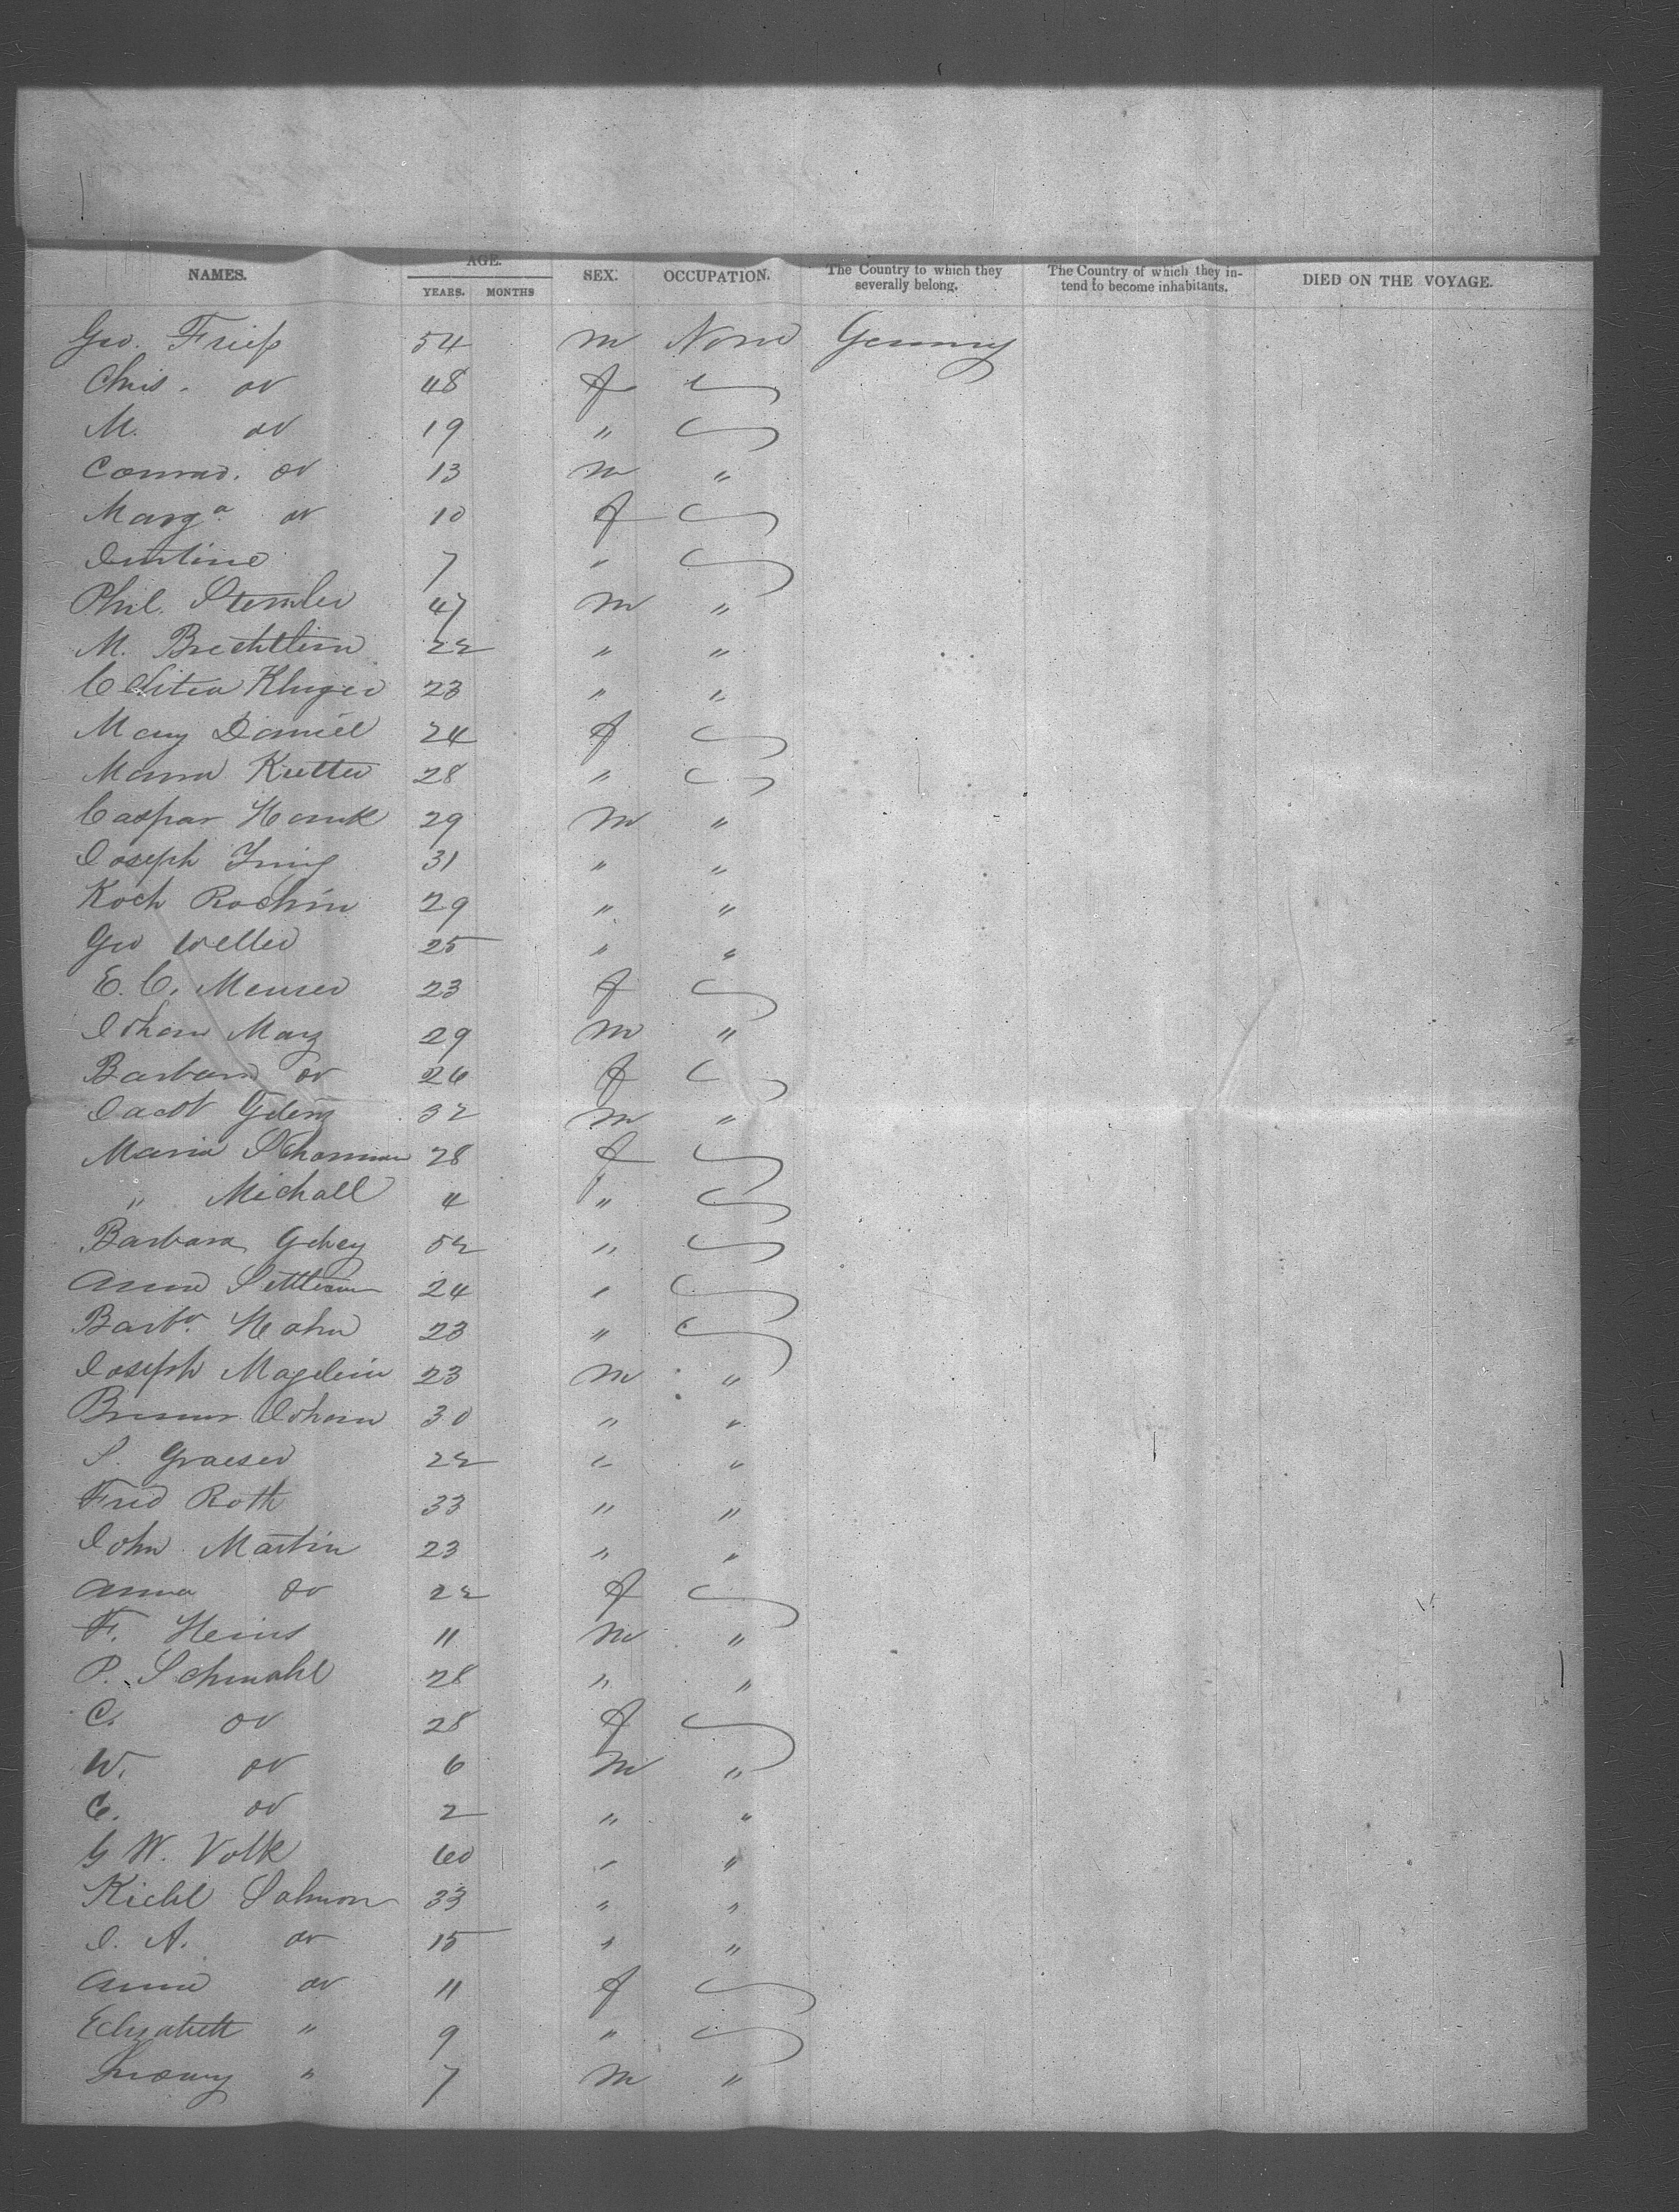 NAMES. AGE. YEARS. MONTHS SEX. OCCUPATION. The Country to which they severally belong. The Country of which they intend to become inhabitants. DIED ON THE VOYAGE.
Geo. Friess 54 m None Germny
Chris. do 48 f
M. do 19 "
Conrad. do 13 m "
Marga do 10 f
7 "
Phil. Stemler 47 m "
M. Brechtlein 22 " "
23 " "
Mary Daniel 24 f
28 "
Caspar Hauk 29 m "
Joseph 31 " "
Koch 29 " "
Geo Weller 25 " "
E. C. Meuser 23 f
Johan Marz 29 m "
Barbara do 26 f
Jacob 32 m "
Maria 28 f
" Michall 4 "
Barbara 52 "
Anna 24 "
Barba. Hahn 23 "
Joseph Magelein 23 m "
Johann 30 " "
S. Graeser 22 " "
Fred Roth 33 " "
John Martin 23 " "
Anna do 22 f
F. Heins 11 m "
P. Schmahl 28 " "
C. do 28 f
W. do 6 m "
C. do 2 " "
G W. Volk 60 " "
Kiehl Salmon 33 " "
J. A. do 15 " "
Anna do 11 f
Elizabeth " 9 "
" 7 m "